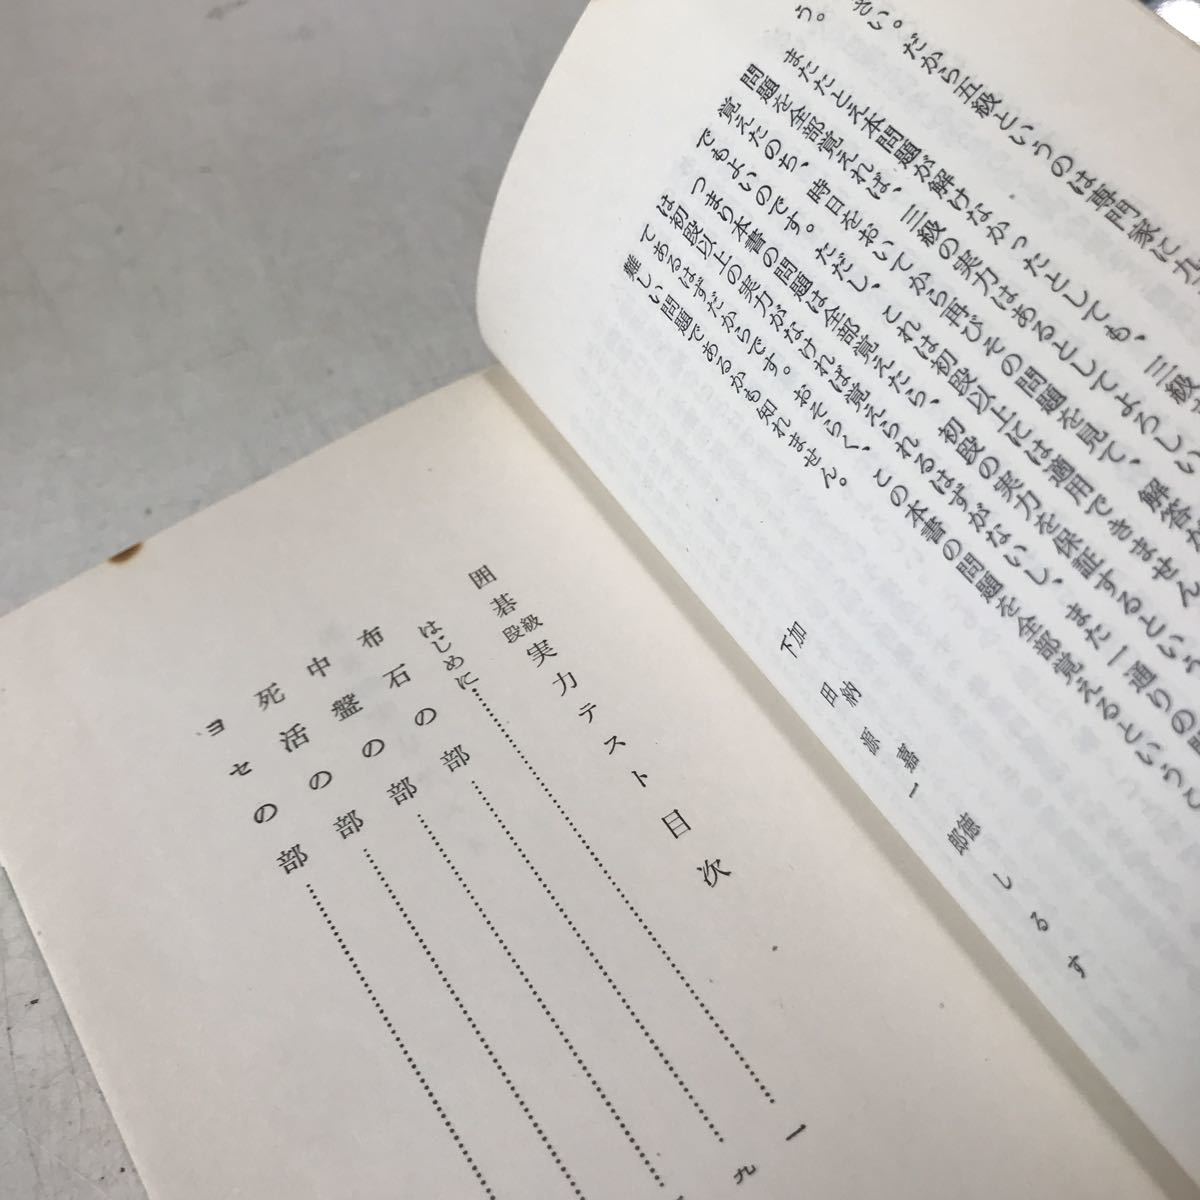 さい。だから五級というのは専門家に九
う。
またたとえ本問題が解けなかったとしても、三級
問題を全部覚えれば、三級の実力はあるとしてよろしい
覚えたのち、時日をおいてから再びその問題を見て、解答が
でもよいのです。ただし、これは初段以上には適用できません
つまり本書の問題は全部覚えたら、初段の実力を保証するという
は初段以上の実力がなければ覚えられるはずがないし、また一通りの問
であるはずだからです。おそらく、この本書の問題を全部覚えるというこ
難しい問題であるかも知れません。
加納嘉徳
下田源一郎
しるす
囲碁級段実力テスト目次
はじめに……一
布石の部……九
中盤の部……
死活の部……
ヨセの部……